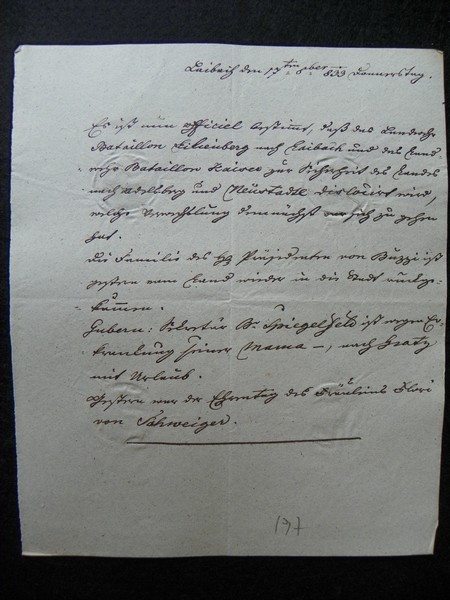 Laibach den 17ten 8ber 833 Donnerstag.
Es ist nun officiel bestimmt, daß das Landwehr
Bataillon Lilienberg nach Laibach und das Land-
wehr Bataillon Kaiser zur Sicherheit des Landes
nach Adelsberg und Neustadtl dislocirt wird,
welche demnächst vor sich zu gehen
hat.
Die Familie des H Präsidenten von Buzzi ist
gestern vom Land wieder in die Stadt
kommen.
Gubern: Sekretär Br Spiegelfeld ist wegen Er-
krankung seiner Mama –, nach Gratz
mit Urlaub.
Gestern war der Ehrentag des Fräuleins Flori
von Schweiger.
197